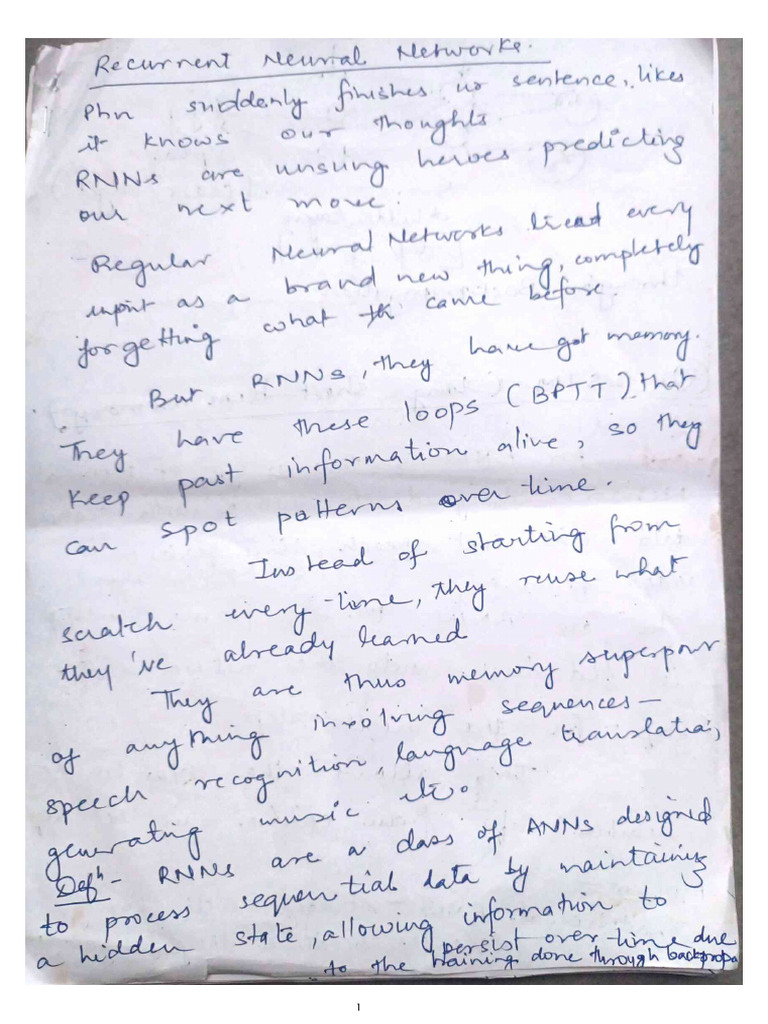 Recurrent Neural Networks.
Phn suddenly finishes ur sentence, likes
it knows our thoughts.
RNNs are unsung heroes predicting
our next move.
Regular Neural Networks treat every
input as a brand new thing, completely
forgetting what came before.
But RNNs, they have got memory.
They have these loops (BPTT) that
keep past information alive, so they
can spot patterns over time.
Instead of starting from
scratch every time, they reuse what
they've already learned
They are thus memory superpowr
of anything involving sequences—
speech recognition, language translation,
generating music etc.
Defn - RNNs are a class of ANNs designed
to process sequential data by maintaining
a hidden state, allowing information to
persist over time due
to the training done through backpropa
1